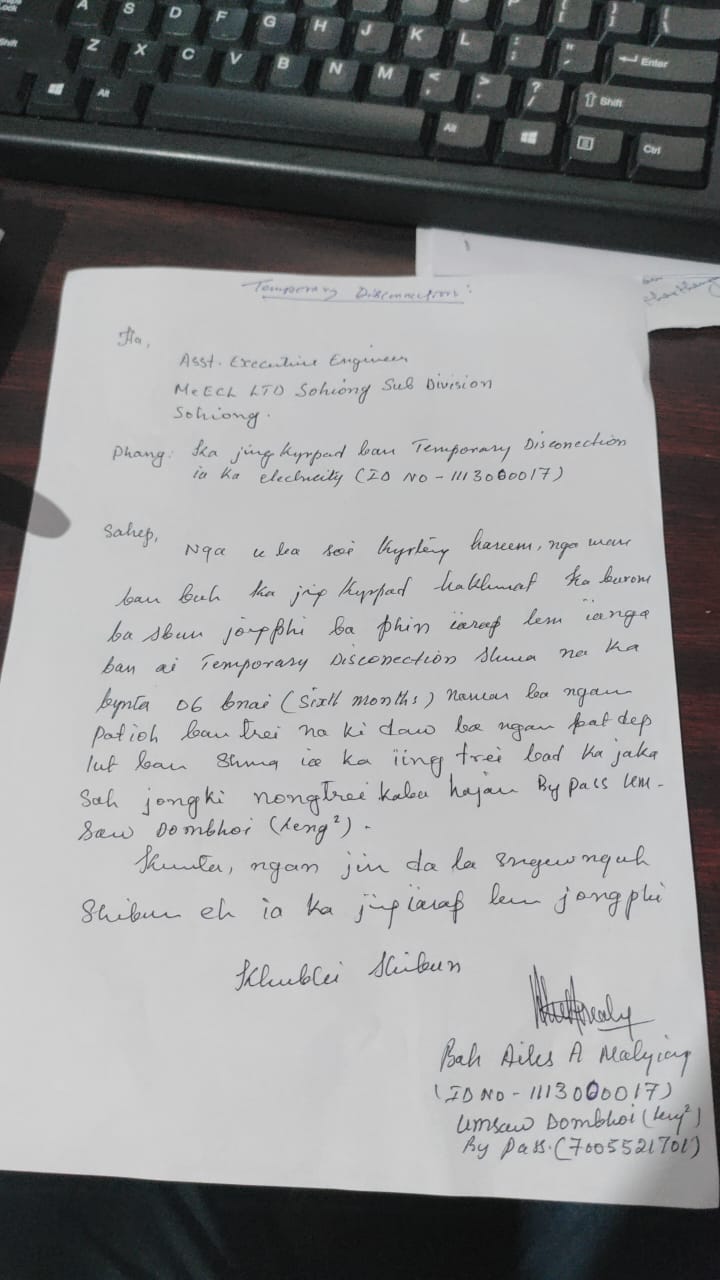 Temporary Disconnection:
Ha,
Asst. Executive Engineer
MeECL LTD Sohiong Sub Division
Sohiong.
Phang: Ka jing kyrpad ban Temporary Disconection
ia ka electricity (ID NO - 1113000017)
Sahep,
Nga u ba soi kyrteng harum, nga wan
ban buh ka jing kyrpad hakhmat ka burom
ba sbun jongphi ba phin ïarap lem ïanga
ban ai Temporary Disconection shwa na ka
bynta 06 bnai (Sixth months) namar ba ngam
pat ioh ban trei na ki daw ba ngam pat dep
lut ban shna ia ka ïing trei bad ka jaka
Sah jong ki nongtrei kaba hajan By pass Um-
Saw Dombhoi (
Kumta, ngan jin da la sngewnguh
Shibun eh ia ka jing ïarap lem jong phi
Khublei Shibun
Bah Ailes A
(ID NO - 1113000017)
Umsaw Dombhoi (
By Pass. (7005521701)
A S D F G H J K L
Z X C V B N M
Enter
Shift
Alt
Alt
Ctrl